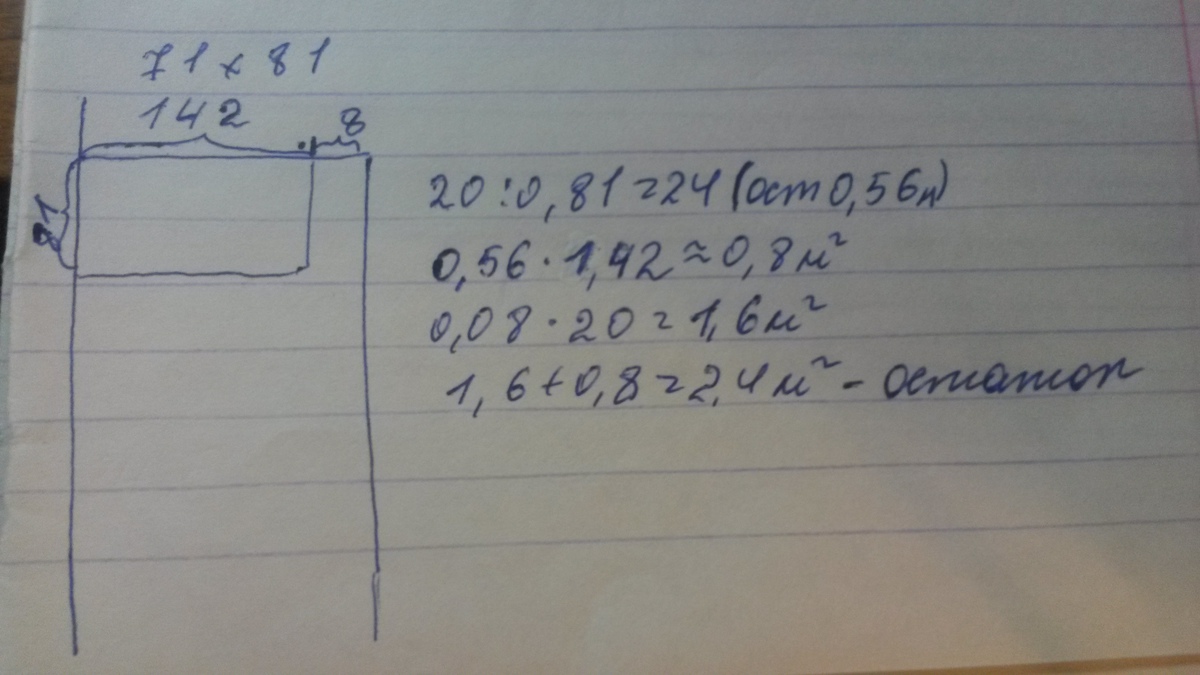 71 x 81
142
8
81
20:0,81=24 (ост 0,56м)
0,56·1,42≈0,8м²
0,08·20=1,6м²
1,6+0,8=2,4м² - остаток